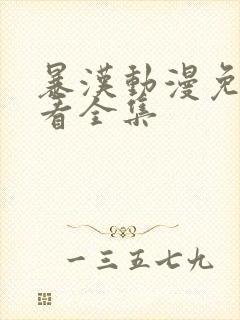 暴漢動漫免
看全集
一三五七九